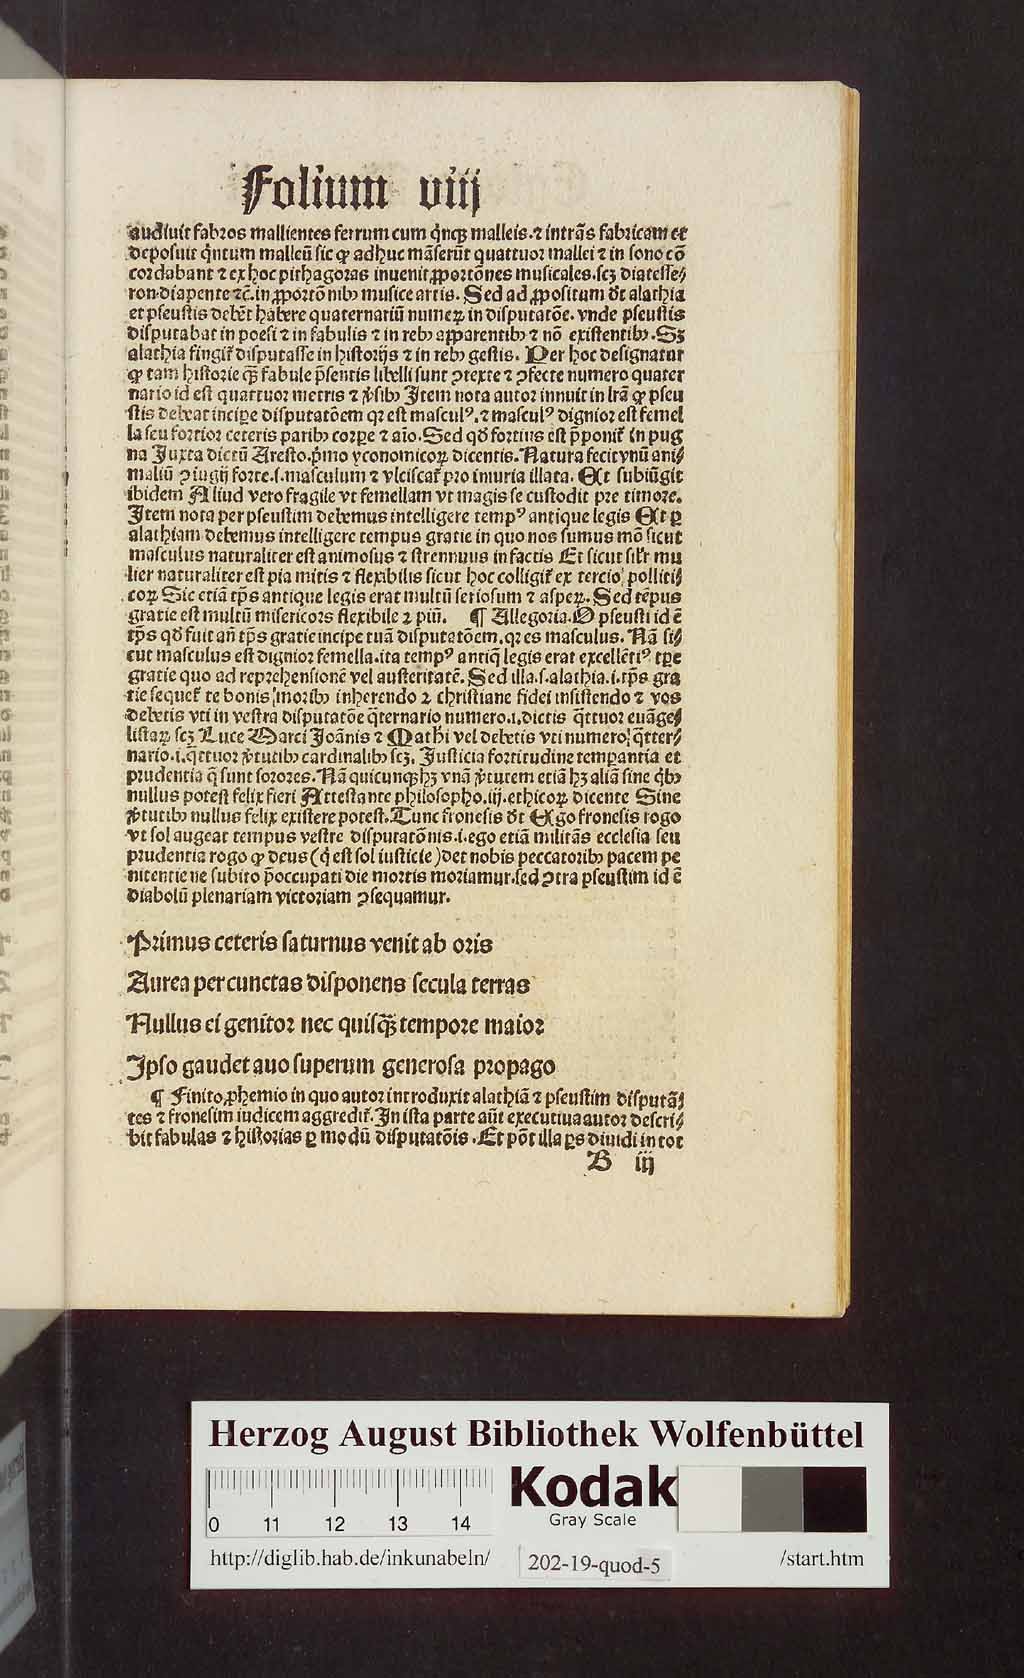 Folium viij
audiuit fabros mallientes ferrum cum q̇nqꝫ malleis.⁊ intrãs fabricam et
deposuit q̇ntum malleũ sic ꝙ adhuc mãserũt quattuor mallei ⁊ in sono cõ
cordabant ⁊ ex hoc pithagoras inuenit ꝓportõnes musicales.scꝫ diatesse⸗
ron.diapente ⁊c̃.in ꝓportõnibꝰ musice artis. Sed ad ꝓpositum dr̃t alathia
et pseustis debẽt habere quaternariũ numeꝝ in disputatõe. vnde pseustis
disputabat in poesi ⁊ in fabulis ⁊ in rebꝰ apparentibꝰ ⁊ nõ existentibꝰ. Sꝫ
alathia fingit᷑ disputasse in historijs ⁊ in rebꝰ gestis. Per hoc designatur
ꝙ tam historie qꝫ̃ fabule p̃sentis libelli sunt ꝯtexte ⁊ ꝯfecte numero quater
nario id est quattuor metris ⁊ ỹsibꝰ Item nota autor innuit in lr̃a ꝙ pseu
stis debeat incipe disputatõem qꝛ est masculꝰ.⁊ masculꝰ dignior est femel
la seu fortior ceteris paribꝰ corꝑe ⁊ aĩo. Sed qd̃ fortius est p̃ponit᷑ in pug
na Juxta dictũ Aresto.p̃mo yconomicoꝝ dicentis. Natura fecit vnũ ani⸗
maliũ ꝯiugij forte.s.masculum ⁊ vlciscat᷑ pro iniuria illata. Et subiũgit
ibidem Aliud vero fragile vt femellam vt magis se custodit pre timore.
Item nota per pseustim debemus intelligere tempꝰ antique legis Et ꝑ
alathiam debemus intelligere tempus gratie in quo nos sumus mõ sicut
masculus naturaliter est animosus ⁊ strennuus in factis Et sicut silr̃ mu
lier naturaliter est pia mitis ⁊ flexibilis sicut hoc colligit᷑ ex tercio polliti⸗
coꝝ Sic etiã tp̃s antique legis erat multũ seriosum ⁊ aspeꝝ. Sed tẽpus
gratie est multũ misericors flexibile ⁊ piũ. ¶ Allegoria. O pseusti id ẽ
tp̃s qd̃ fuit añ tp̃s gratie incipe tuã disputatõem.qꝛ es masculus. Nã si⸗
cut masculus est dignior femella.ita tempꝰ antiq̃ legis erat excellẽtiꝰ tp̃e
gratie quo ad reprehensionẽ vel austeritatẽ. Sed illa.s.alathia.i.tp̃s gra
tie sequet᷑ te bonis moribꝰ inherendo ⁊ christiane fidei insistendo ⁊ vos
debetis vti in vestra disputatõe q̃ternario numero.i.dictis q̃ttuor euãge⸗
listaꝝ scꝫ Luce Marci Joãnis ⁊ Mathi vel debetis vti numero q̃tter⸗
nario.i.q̃ttuor ỹtutibꝰ cardinalibꝰ scꝫ. Justicia fortitudine temperantia et
prudentia q̃ sunt sorores. Nã quicunqꝫ hꝫ vnã ỹtutem etiã hꝫ aliã sine q̇bꝰ
nullus potest felix fieri Attestante philosopho.iij.ethicoꝝ dicente Sine
ỹtutibꝰ nullus felix existere potest. Tunc fronesis dr̃t Ego fronesis rogo
vt sol augeat tempus vestre disputatõnis.i.ego etiã militãs ecclesia seu
prudentia rogo ꝙ deus (q̇ est sol iusticie) det nobis peccatoribꝰ pacem pe
nitentie ne subito p̃occupati die mortis moriamur.sed ꝯtra pseustim id ẽ
diabolũ plenariam victoriam ꝯsequamur.
Primus ceteris saturnus venit ab oris
Aurea per cunctas disponens secula terras
Nullus ei genitor nec quisqꝫ̃ tempore maior
Ipso gaudet auo superum generosa propago
¶ Finito ꝓhemio in quo autor introduxit alathiã ⁊ pseustim disputã⸗
tes ⁊ fronesim iudicem aggredit᷑. In ista parte aũt executiua autor descri⸗
bit fabulas ⁊ historias ꝑ modũ disputatõis. Et põt illa ꝑs diuidi in tot
B iij
Herzog August Bibliothek Wolfenbüttel
0 11 12 13 14
Kodak
Gray Scale
http://diglib.hab.de/inkunabeln/ 202-19-quod-5 /start.htm